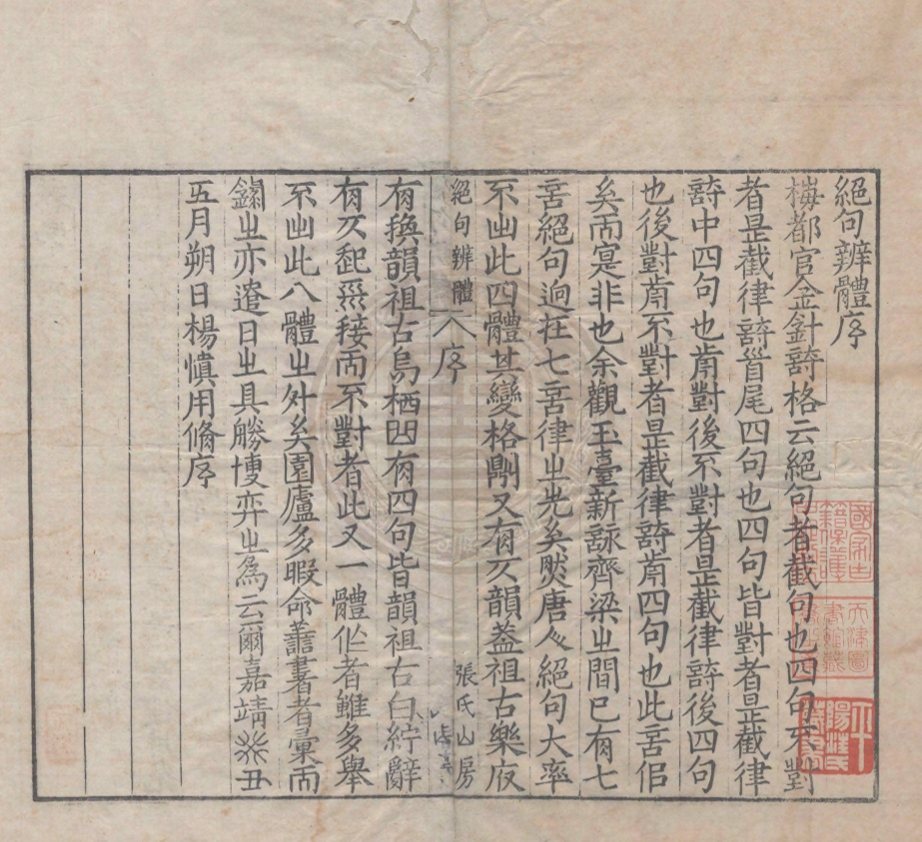 絕句辨體序
梅都官金針詩格云絕句者截句也四句不對
者是截律詩首尾四句也四句皆對者是截律
詩中四句也前對後不對者是截律詩後四句
也後對前不對者是截律詩前四句也此言似
矣而寔非也余觀玉臺新詠齊梁之間已有七
言絕句迥在七言律之先矣然唐人絕句大率
不出此四體其變格則又有仄韻蓋祖古樂府
絕句辨體 序 張氏山房
有換韻祖古烏栖曲有四句皆韻祖古白紵辭
有仄起平接而不對者此又一體作者雖多舉
不出此八體之外矣園廬多暇命善書者彙而
鏁之亦遣日之具勝博弈之為云爾嘉靖癸丑
五月朔日楊慎用脩序